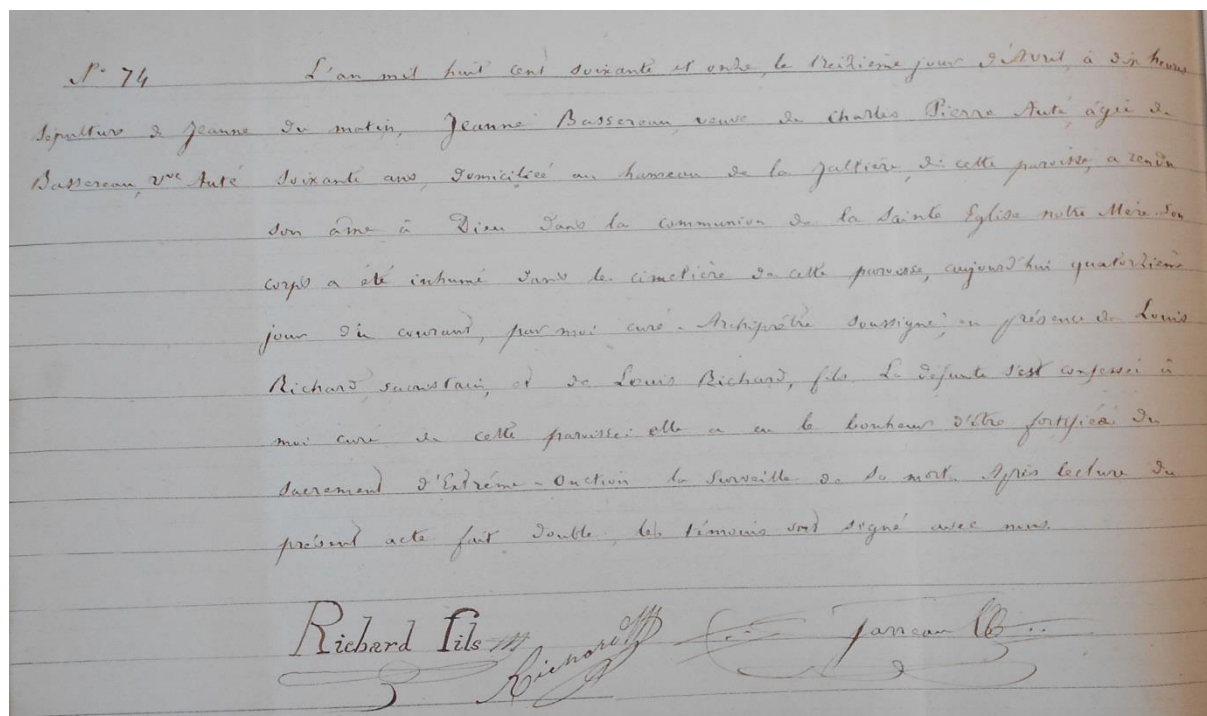 N° 74 L'an mil huit cent soixante et onze, le treizième jour d'Avril, à dix heures
Sépulture de Jeanne du matin, Jeanne Bassereau, veuve de Charles Pierre Auté, âgée de
Bassereau, vve Auté soixante ans, domiciliée au hameau de la Jaltière, de cette paroisse, a rendu
son âme à Dieu dans la communion de la Sainte Eglise notre Mère. Son
corps a été inhumé dans le cimetière de cette paroisse, aujourd'hui quatorzième
jour du courant, par moi curé-Archiprêtre soussigné, en présence de Louis
Richard, sacristain, et de Louis Richard, fils. La défunte s'est confessée à
moi curé de cette paroisse; elle a eu le bonheur d'être fortifiée du
sacrement d'Extrême-Onction la surveille de sa mort. Après lecture du
présent acte fait double, les témoins ont signé avec nous.
Richard fils Richard Janneau